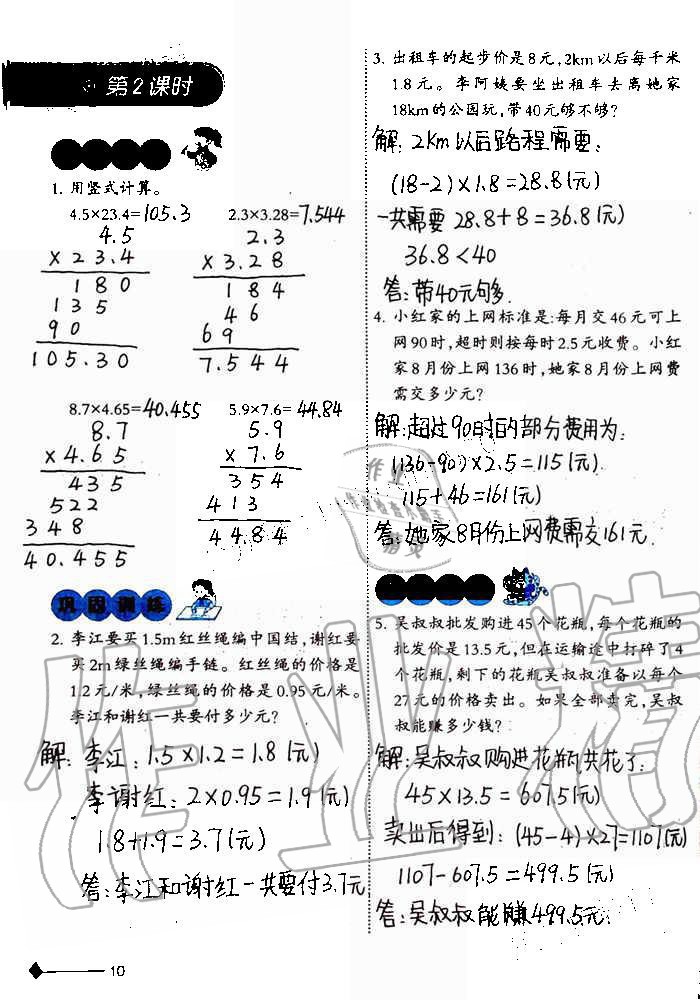 第2课时
1. 用竖式计算。
4.5×23.4=105.3
4.5
×23.4
180
135
90
105.30
2.3×3.28=7.544
2.3
×3.28
184
46
69
7.544
8.7×4.65=40.455
8.7
×4.65
435
522
348
40.455
5.9×7.6=44.84
5.9
×7.6
354
413
44.84
巩固训练
2. 李江要买1.5m红丝绳编中国结,谢红要
买2m绿丝绳编手链。红丝绳的价格是
1.2元/米,绿丝绳的价格是0.95元/米。
李江和谢红一共要付多少元?
解: 李江: 1.5×1.2=1.8(元)
李谢红: 2×0.95=1.9(元)
1.8+1.9=3.7(元)
答:李江和谢红一共要付3.7元
10
3. 出租车的起步价是8元,2km以后每千米
1.8元。李阿姨要坐出租车去离她家
18km的公园玩,带40元够不够?
解: 2Km以后路程需要:
(18-2)×1.8=28.8(元)
一共需要 28.8+8=36.8(元)
36.8<40
答:带40元句多.
4. 小红家的上网标准是:每月交46元可上
网90时,超时则按每时2.5元收费。小红
家8月份上网136时,她家8月份上网费
需交多少元?
解:超过90时的部分费用为:
(136-90)×2.5=115(元)
115+46=161(元)
答:她家8月份上网费需交161元.
5. 吴叔叔批发购进45个花瓶,每个花瓶的
批发价是13.5元,但在运输途中打碎了4
个花瓶,剩下的花瓶吴叔叔准备以每个
27元的价格卖出。如果全部卖完,吴叔
叔能赚多少钱?
解:吴叔叔购进花瓶共花了:
45×13.5=607.5(元)
卖出后得到:(45-4)×27=1107(元)
1107-607.5=499.5(元)
答:吴叔叔能赚499.5元.
作业精